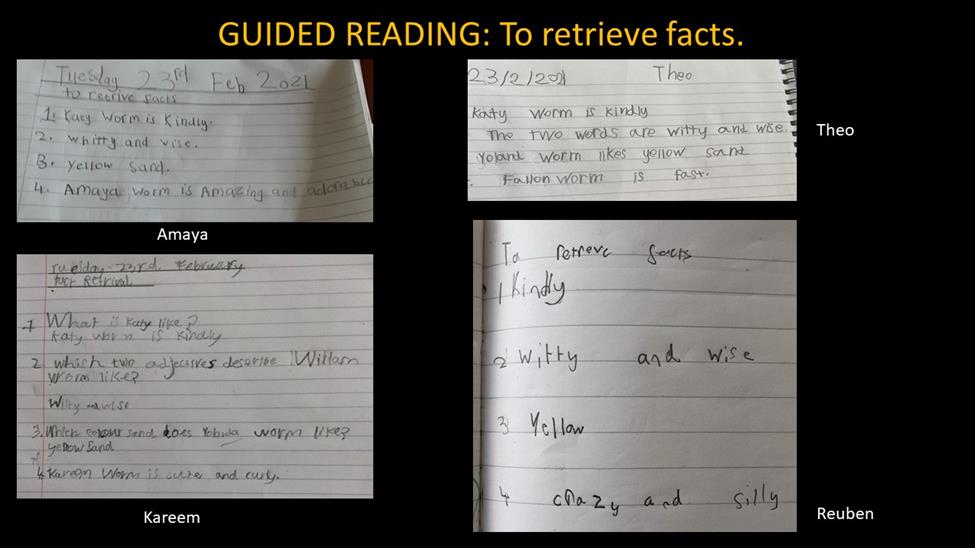 GUIDED READING: To retrieve facts.
Tuesday 23rd Feb 2021
to retrive facts
1. Katy Worm is Kindly.
2. whitty and wise.
3. yellow sand.
4. Amaya worm is Amazing and adorable
Amaya
23/2/2021 Theo
Katy worm is kindly
The two words are witty and wise.
Yoland worm likes yellow sand
Fallon worm is fast.
Theo
Tuesday 23rd February
Retrival
1 What is Katy like?
Katy worm is kindly
2. which two describe William
worm like?
Witty and wise
3. Which colour sand does worm like?
yellow sand
4. Kareem Worm is cute and curly.
Kareem
To retreve facts
1 Kindly
2 witty and wise
3 Yellow
4 crazy and silly
Reuben